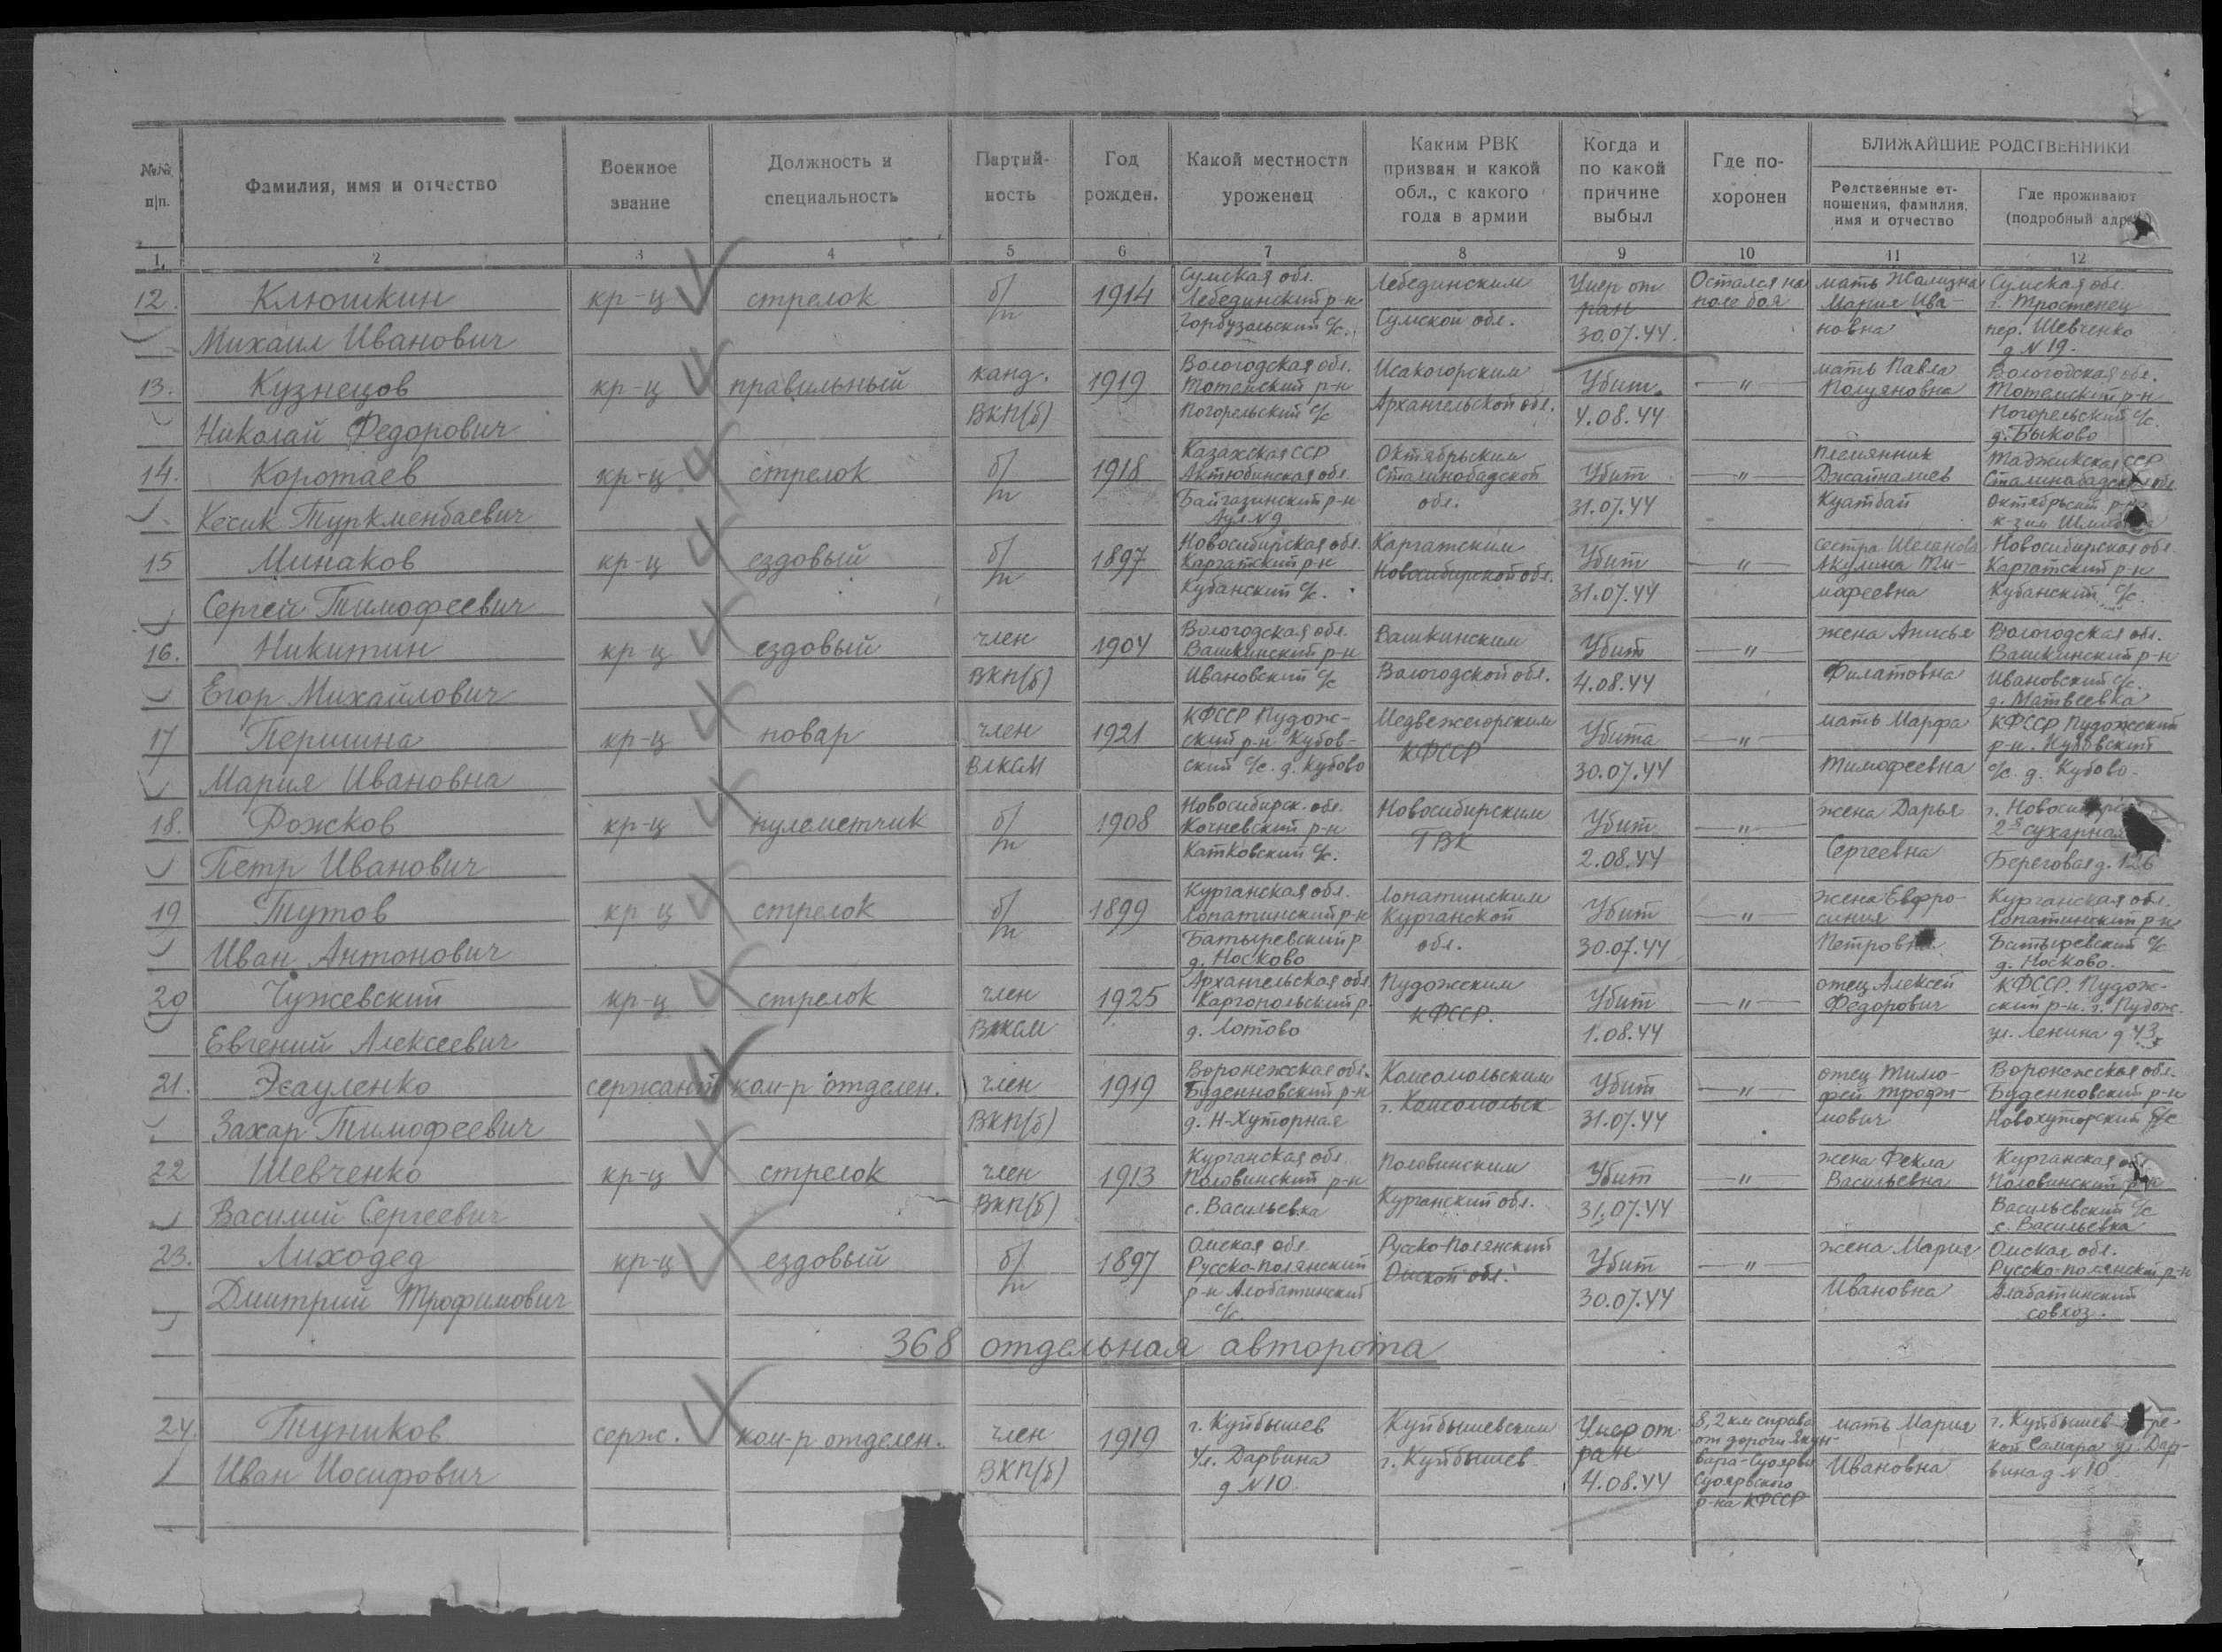 №№ п/п.
Фамилия, имя и отчество
Военное звание
Должность и специальность
Партий- ность
Год рожден.
Какой местности уроженец
Каким РВК призван и какой обл., с какого года в армии
Когда и по какой причине выбыл
Где по- хоронен
БЛИЖАЙШИЕ РОДСТВЕННИКИ
Родственные от- ношения, фамилия, имя и отчество
Где проживают (подробный адрес)
1. 2 3 4 5 6 7 8 9 10 11 12
12. Клюшкин кр-ц стрелок б/п 1914 Сумская обл. Лебединским Умер от Остался на мать Жализна Сумская обл.
Лебединский р-н ран поле боя Мария Ива- г. Тростенец
Михаил Иванович с/с. Сумской обл. 30.07.44. новна пер. Шевченко
д N 19.
13. Кузнецов кр-ц правильный канд. 1919 Вологодская обл. Исакогорским Убит. —"— мать Павла Вологодская обл.
Тотемский р-н Полуяновна Тотемский р-н
Николай Федорович ВКП(б) Погорельский с/с Архангельской обл. 4.08.44 Погорельский с/с.
д. Быково
14. Коротаев кр-ц стрелок б/п 1918 Казахская ССР Октябрьским Убит —"— племянник Таджикская ССР
Актюбинская обл. Сталинобадской Джайналиев Сталинабадская обл.
Кесик Туркменбаевич Байгазинский р-н обл. 31.07.44 Куатбай Октябрьский р-н
Аул N 9 к-з им
15 Минаков кр-ц ездовый б/п 1897 Новосибирская обл. Каргатским Убит —"— сестра Новосибирская обл
Каргатский р-н Новосибирской обл. Акулина Ти- Каргатский р-н
Сергей Тимофеевич Кубанский с/с. 31.07.44 мофеевна Кубанский с/с.
16. Никитин кр-ц ездовый член 1904 Вологодская обл. Вашкинским Убит —"— жена Анисья Вологодская обл.
Вашкинский р-н Вашкинский р-н
Егор Михайлович ВКП(б) Ивановский с/с Вологодской обл. 4.08.44 Филатовна Ивановский с/с.
д. Матвеевка
17 Першина кр-ц повар член 1921 КФССР Пудож- Медвежегорским Убита —"— мать Марфа КФССР Пудожский
ский р-н Кубов- КФССР р-н. Кубовский
Мария Ивановна ВЛКСМ ский с/с. д. Кубово 30.07.44 Тимофеевна с/с. д. Кубово.
18. Рожков кр-ц пулеметчик б/п 1908 Новосибирск. обл. Новосибирским Убит —"— жена Дарья г. Новосибирск
Коченевский р-н ГВК 2я сухарная
Петр Иванович Катковский с/с. 2.08.44 Сергеевна Береговая д. 126
19 Тутов кр-ц стрелок б/п 1899 Курганская обл. Лопатинским Убит —"— жена Евфро- Курганская обл.
Лопатинский р-н Курганской синия Лопатинский р-н
Иван Антонович Батыревский р обл. 30.07.44 Петровна Батыревский с/с
д. Носково д. Носково.
20 Чужевский кр-ц стрелок член 1925 Архангельская обл Пудожским Убит —"— отец Алексей КФССР. Пудож-
Каргопольский р. КФССР. Федорович ский р-н. г. Пудож.
Евгений Алексеевич ВЛКСМ д. Лотово 1.08.44 ул. Ленина д 43
21. Эсауленко сержант ком-р отделен. член 1919 Воронежская обл. Комсомольским Убит —"— отец Тимо- Воронежская обл.
Буденновский р-н г. Комсомольск фей Трофи- Буденновский р-н
Захар Тимофеевич ВКП(б) д. Н-Хуторная 31.07.44 мович Новохуторский с/с
22 Шевченко кр-ц стрелок член 1913 Курганская обл Половинским Убит —"— жена Фекла Курганская обл
Половинский р-н Васильевна Половинский р-н
Василий Сергеевич ВКП(б) с. Васильевка Курганский обл. 31.07.44 Васильевский с/с
с. Васильевка
23. Лиходед кр-ц ездовый б/п 1897 Омская обл Русско-Полянский Убит —"— жена Мария Омская обл.
Русско-Полянский Омской обл. Русско-полянский р-н
Дмитрий Трофимович р-н Алобатинский 30.07.44 Ивановна Алабатинский
с/с. совхоз.
368 отдельная авторота
24. Туников серж. ком-р отделен. член 1919 г. Куйбышев Куйбышевским Умер от 8,2 км справа мать Мария г. Куйбышев
ул. Дарвина г. Куйбышев ран от дороги кой Самара ул. Дар-
Иван Иосифович ВКП(б) д N 10 4.08.44 вара-Суоярви Ивановна вина д N 10
Суоярвского
р-на КФССР